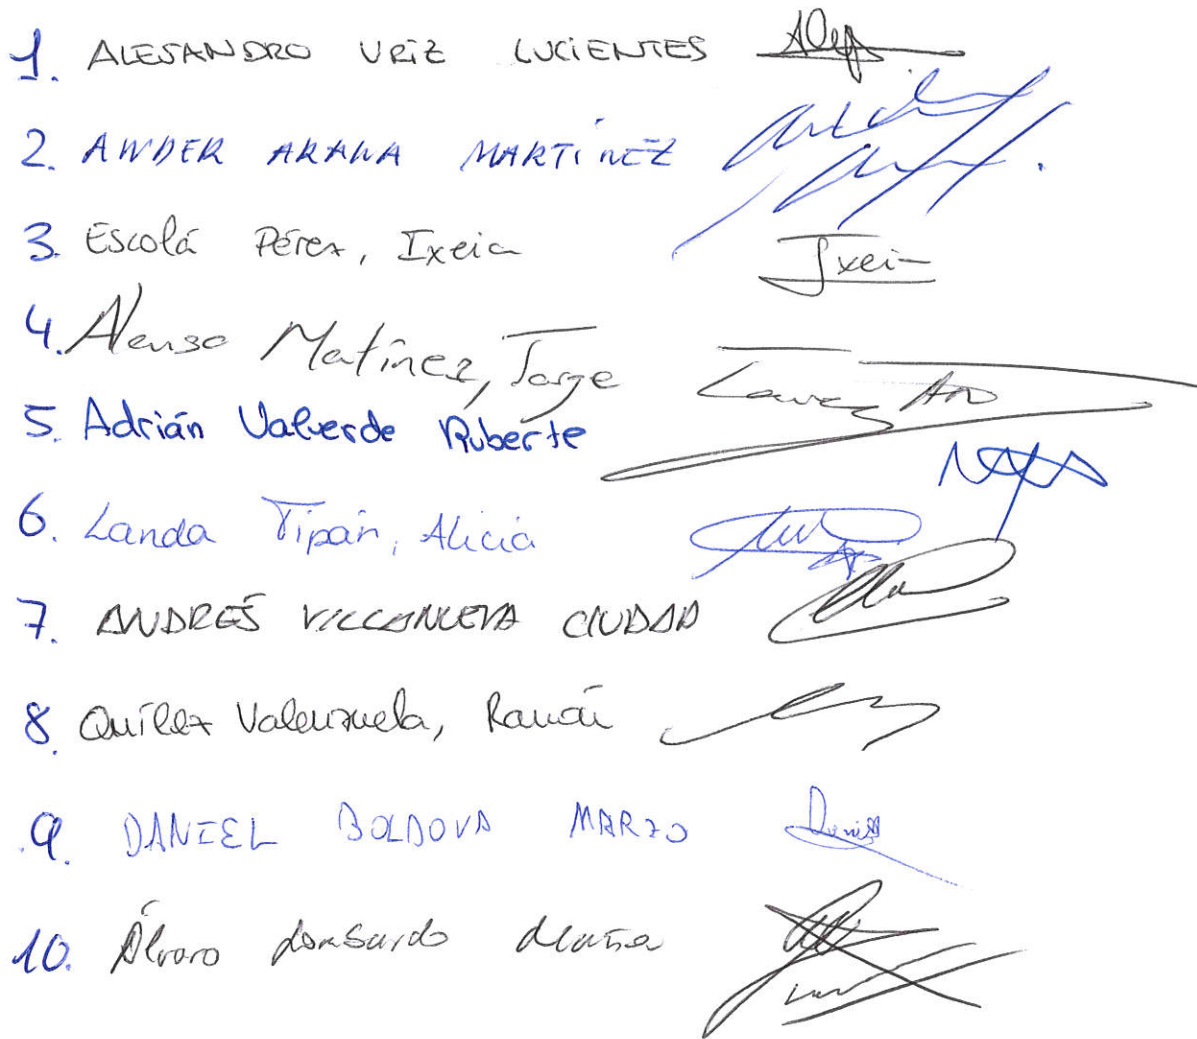 1. ALEJANDRO URIZ LUCIENTES
2. ANDER ARANA MARTÍNEZ
3. Escolá Pérez, Ixeia Ixeia
4. Alonso Matínez, Jorge
5. Adrián Valverde Ruberte
6. Landa Tipán, Alicia
7. ANDRÉS VILLANUEVA CIUDAD
8. Quílez Valenzuela, Ramón
9. DANIEL BOLDOVA MARZO Daniel
10. Álvaro Lombardo